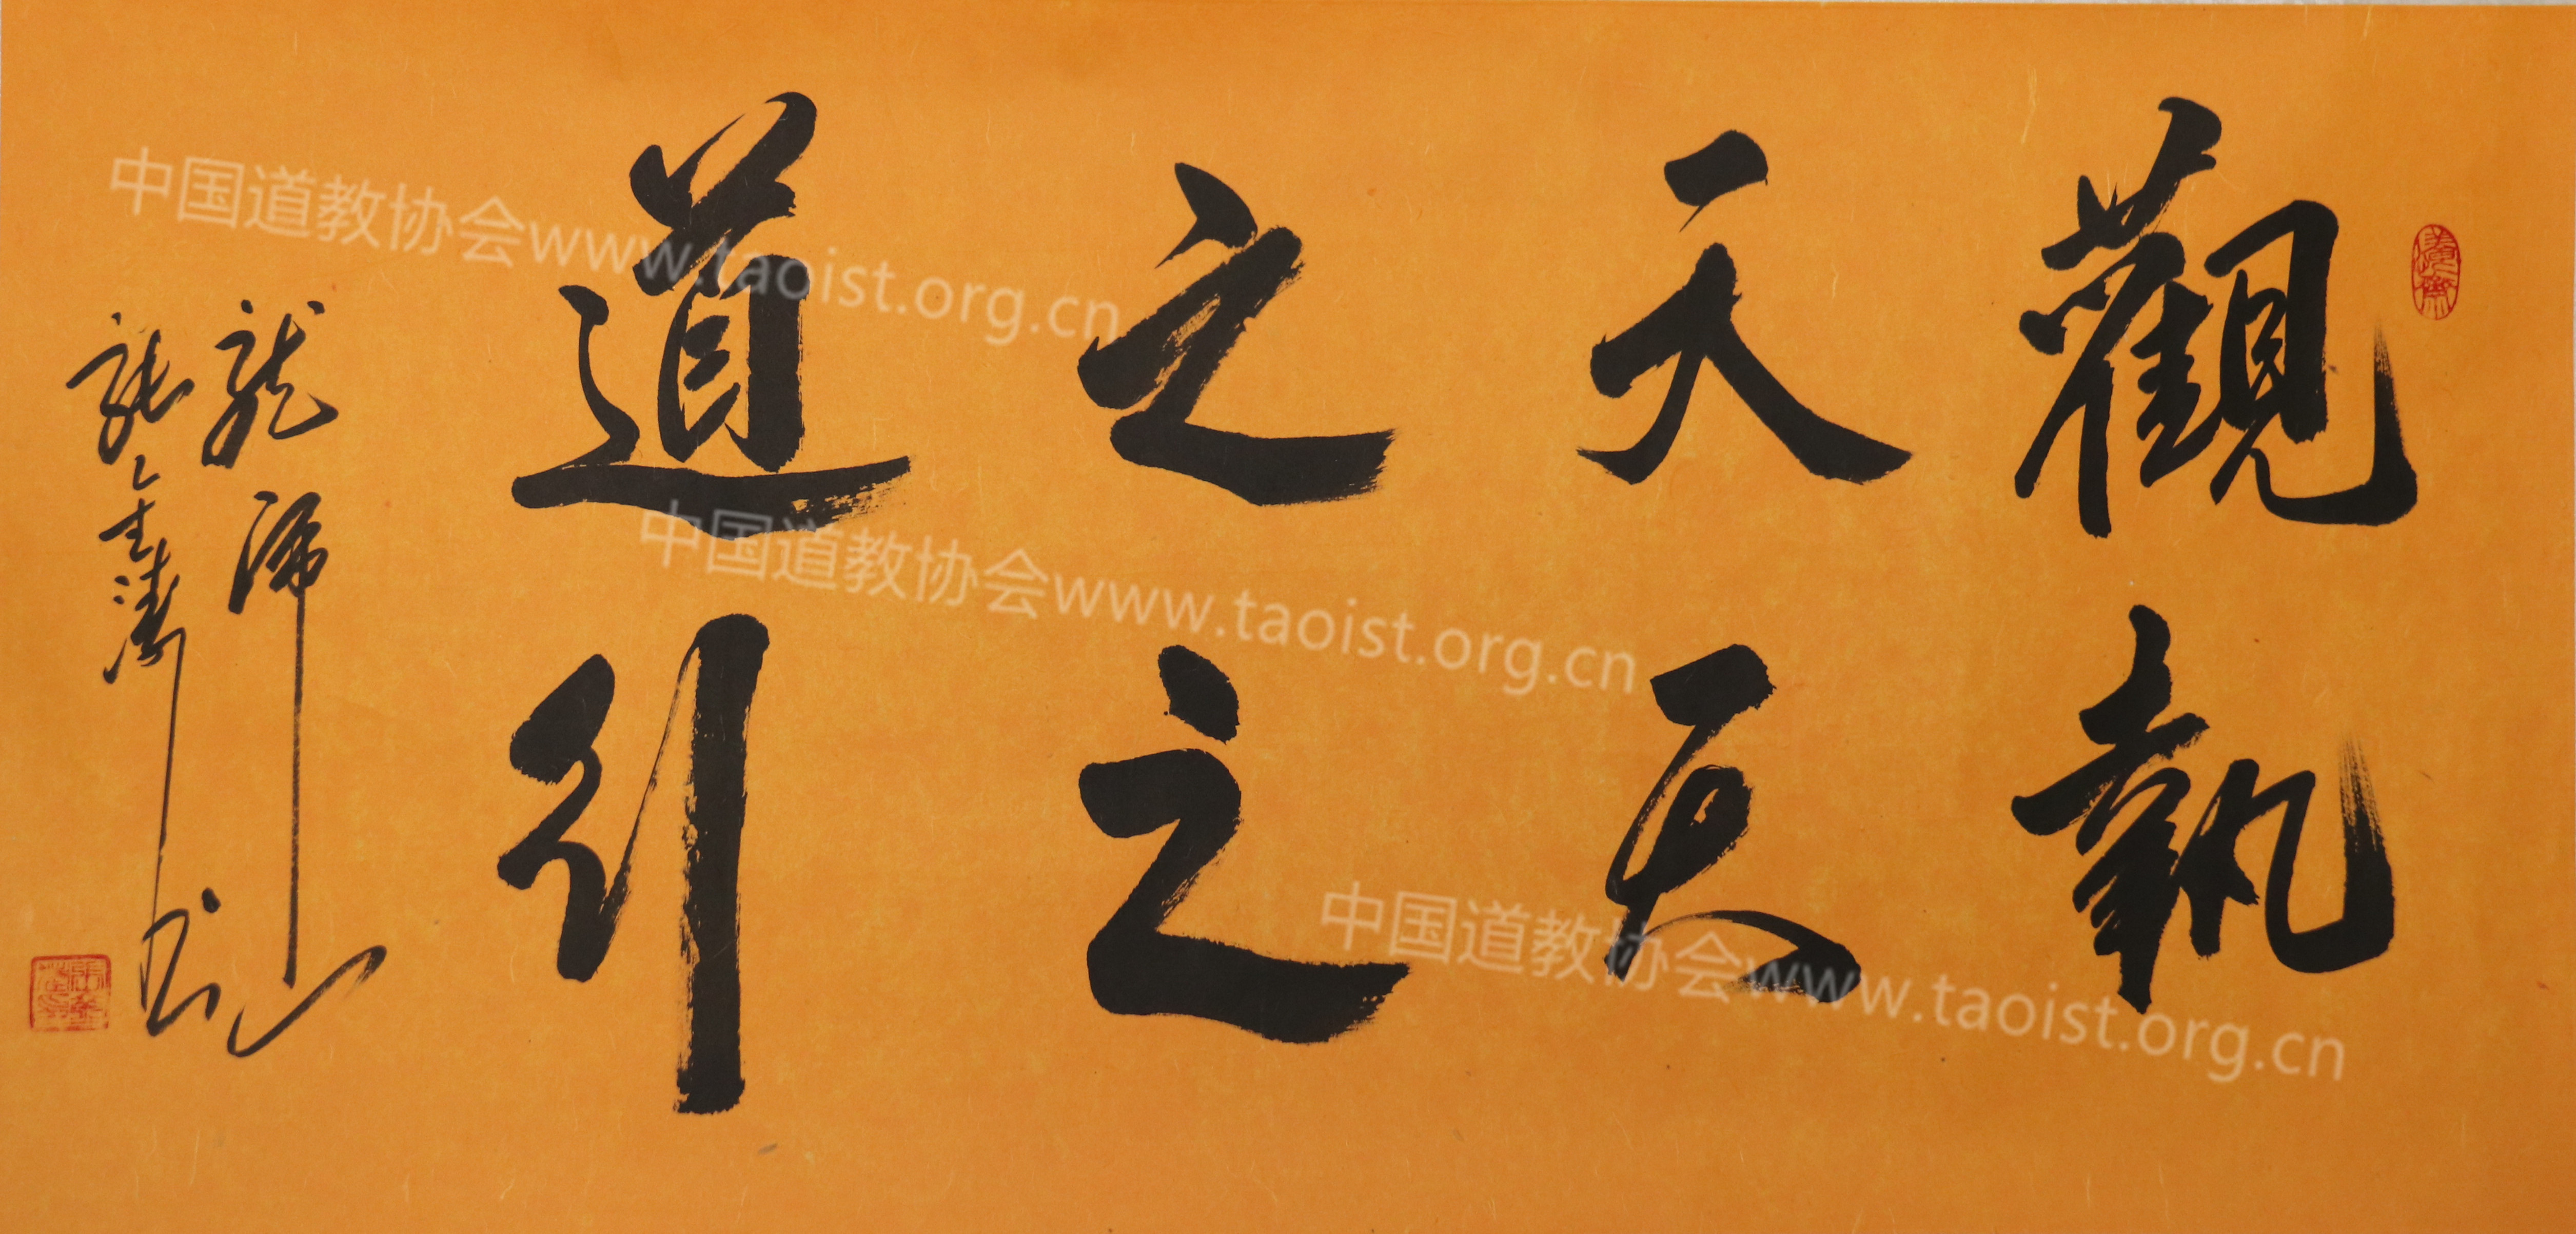 觀天之道
執天之行
龍虎山
張金涛书
中国道教协会www.taoist.org.cn
中国道教协会www.taoist.org.cn
中国道教协会www.taoist.org.cn